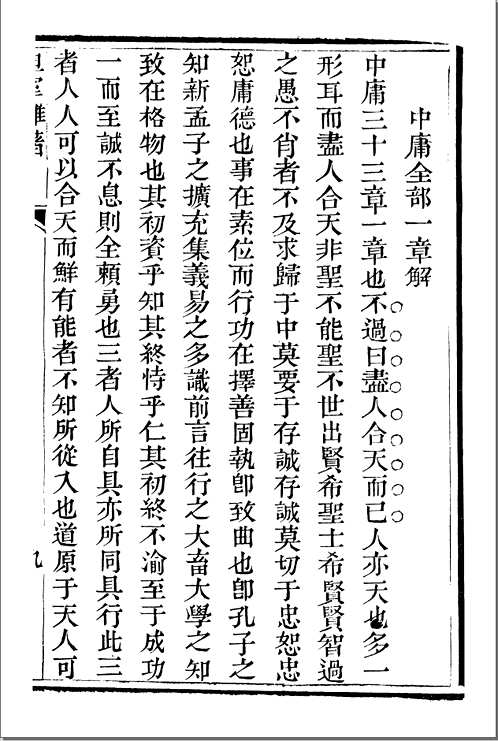 中庸全部一章解
中庸三十三章一章也不過曰盡人合天而已人亦天也多一
形耳而盡人合天非聖不能聖不世出賢希聖士希賢賢智過
之愚不肖者不及求歸于中莫要于存誠存誠莫切于忠恕忠
恕庸德也事在素位而行功在擇善固執卽致曲也卽孔子之
知新孟子之擴充集義易之多識前言往行之大畜大學之知
致在格物也其初資乎知其終恃乎仁其初終不渝至于成功
一而至誠不息則全賴勇也三者人所自具亦所同具行此三
者人人可以合天而鮮有能者不知所從入也道原于天人可
雜著
九